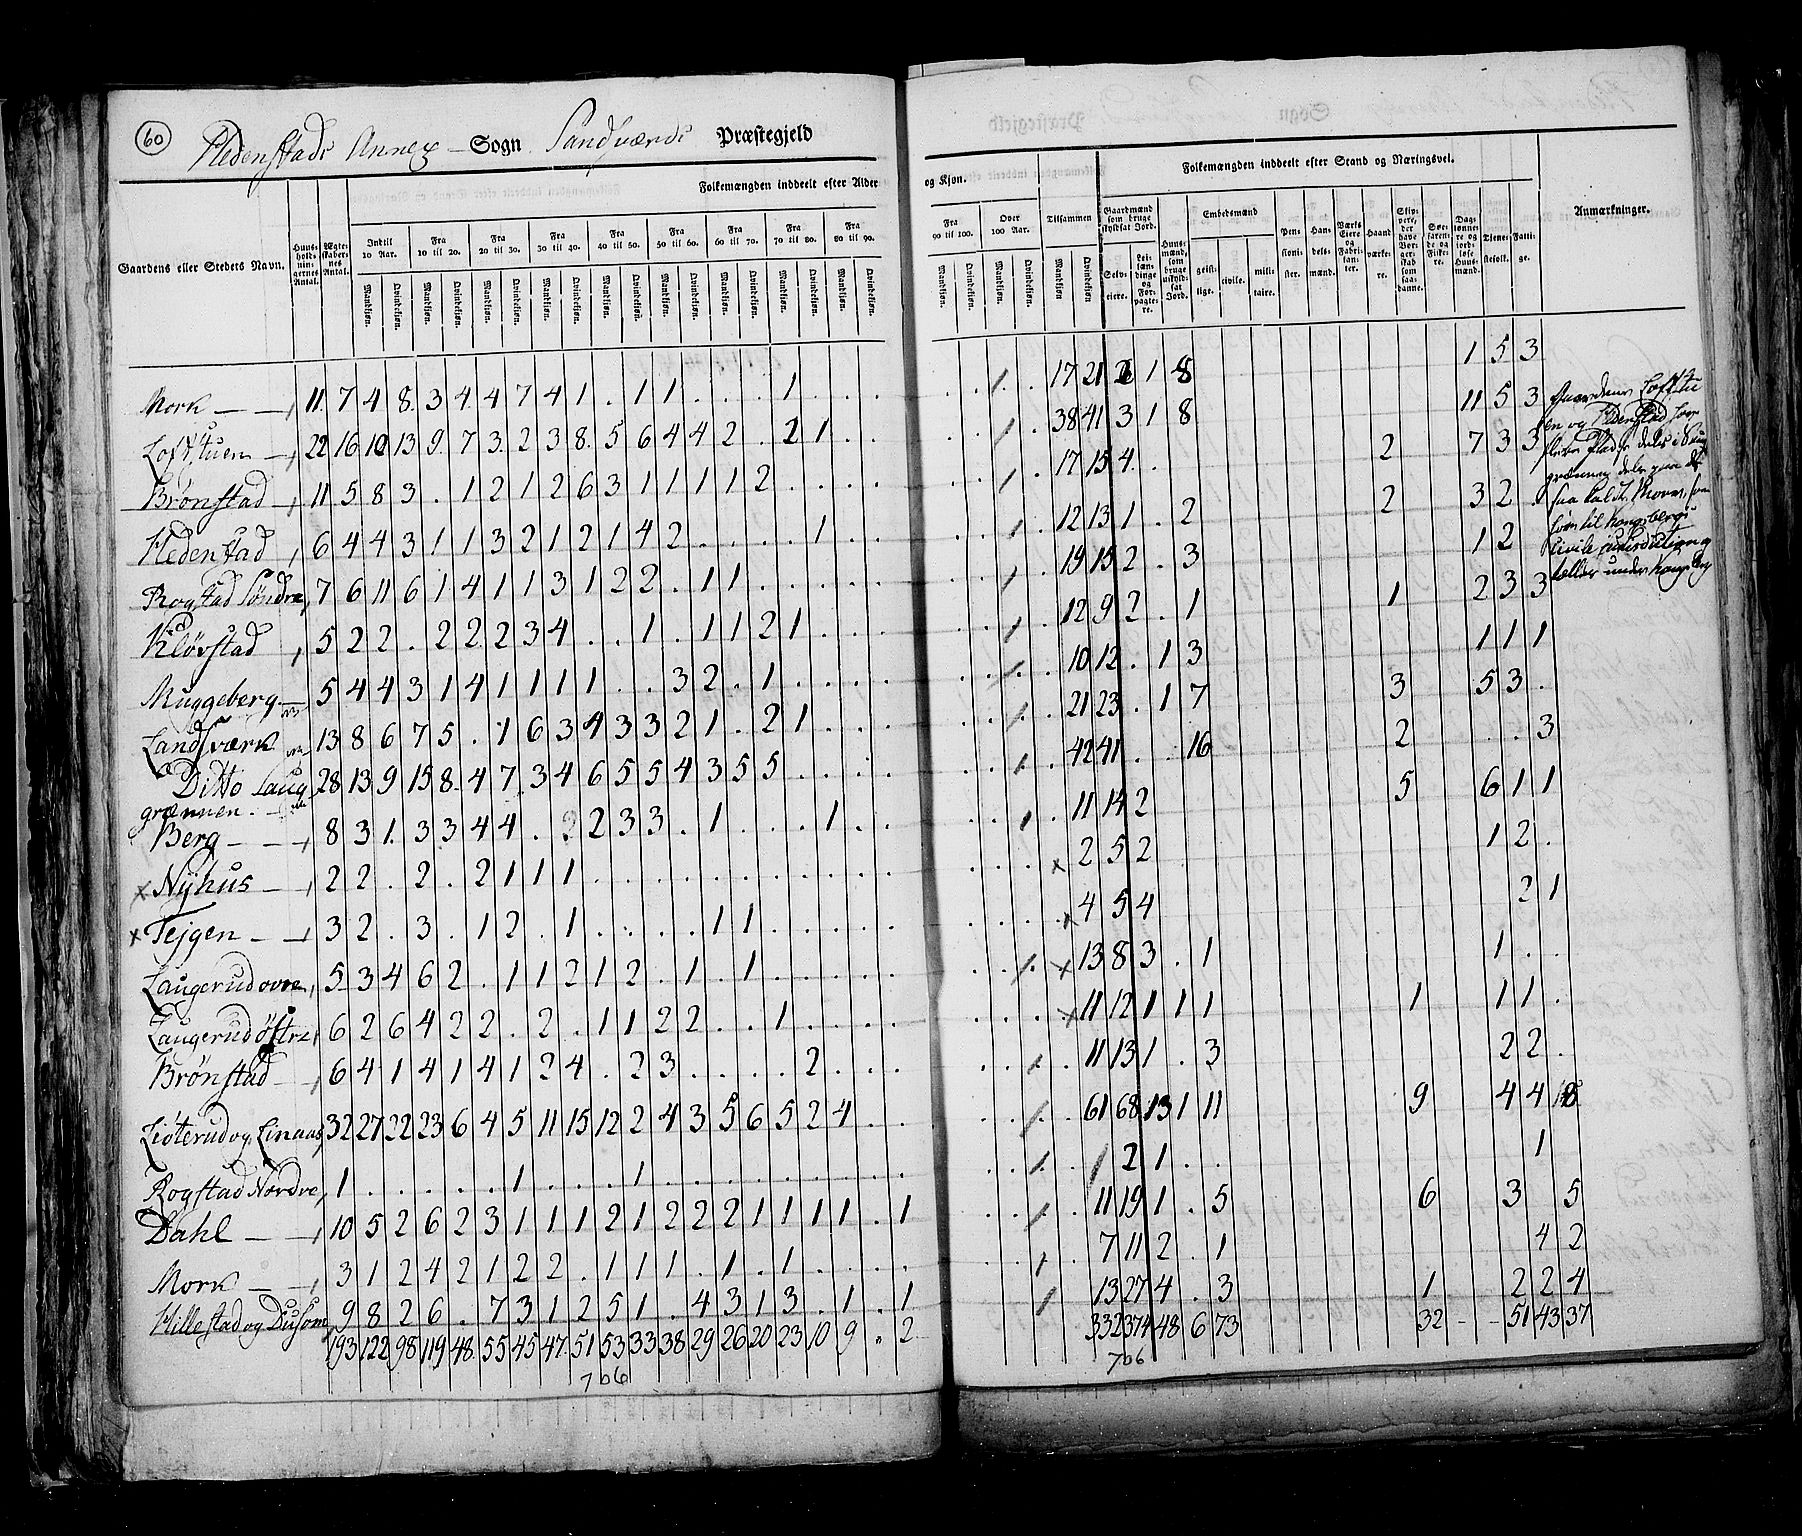 60
Hedenstads Annex - Sogn Sandsværds Præstegjeld
Folkemængden inddeelt efter Alder
Gaardens eller Stedets Navn.
Huus-holdnin-gernes Antal.
Ægte-skaber-nes Antal.
Indtil 10 Aar.
Fra 10 til 20.
Fra 20 til 30.
Fra 30 til 40.
Fra 40 til 50.
Fra 50 til 60.
Fra 60 til 70.
Fra 70 til 80.
Fra 80 til 90.
Mandkjøn. Qvindekjøn. Mandkjøn. Qvindekjøn. Mandkjøn. Qvindekjøn. Mandkjøn. Qvindekjøn. Mandkjøn. Qvindekjøn. Mandkjøn. Qvindekjøn. Mandkjøn. Qvindekjøn. Mandkjøn. Qvindekjøn. Mandkjøn. Qvindekjøn.
Mork 11 7 4 8 3 4 4 7 4 1 . 1 1 . . . 1 . . .
Loftstuen 22 16 10 13 9 7 3 2 3 8 5 6 4 4 2 . 2 1 . .
Brønstad 11 5 8 3 . 1 2 1 2 6 3 1 1 1 1 2 . . . .
Hedenstad 6 4 4 3 1 1 3 2 1 2 1 4 2 . . . . 1 . .
Rogstad Søndre 7 6 11 6 1 4 1 1 3 1 2 2 . 1 1 . . . . .
Kløvstad 5 2 2 . 2 2 2 3 4 . . 1 . 1 1 2 1 . . .
Muggeberg 5 4 4 3 1 4 1 1 1 1 . . 3 2 . 1 . . . .
Landsværk 13 8 6 7 5 . 1 6 3 4 3 3 2 1 . 2 1 . . .
Ditto Laug 28 13 9 15 8 4 7 3 4 6 5 5 4 3 5 5 . . . .
grænnen.
Berg 8 3 1 3 3 4 4 . 3 2 3 3 . 1 . . . 1 . .
x Nyhus 2 2 . 2 . 2 1 1 1 . . . . . . . . . . .
x Tejgen 3 2 . 3 . 1 2 . 1 . . . . 1 1 . . . . .
Laugerud øvre 5 3 4 6 2 . 1 1 2 1 2 . 1 . 1 . . . . .
Laugerud Østre 6 2 6 4 2 2 . 2 . 1 1 2 2 . . 1 . . . .
Brønstad 6 4 1 4 1 4 1 2 4 . 2 3 . . . . 2 . . .
Lioterud og Linaas 32 27 22 23 6 4 5 11 15 12 2 4 3 5 6 5 2 4 . .
Rogstad Nordre 1 . . . . . 1 . . . 1 . . . . . . . . .
Dahl 10 5 2 6 2 3 1 1 1 2 1 2 2 2 1 1 1 1 . 1
Mork 3 1 2 4 2 1 2 2 . 1 1 1 . 1 . 1 . . . .
Hillestad og Dusom 9 8 2 6 . 7 3 1 2 5 1 . 4 3 1 3 . 1 . 1
193 122 98 119 48 55 45 47 51 53 33 38 29 26 20 23 10 9 " 2
706
og Kjøn.
Folkemængden inddeelt efter Stand og Næringsvei.
Fra 90 til 100.
Over 100 Aar.
Tilsammen
Gaardmænd som bruge skyldsat Jord.
Selv-eiere.
Lei-læn-dinge og For-pagte-re.
Huus-mænd, som bruge uskyld-sat Jord.
Embedsmænd
geist-lige.
civile.
mili-taire.
Pen-sioni-ster.
Han-dels-mænd.
Værks Eiere og Fabri-kan-ter.
Haand værke-re.
Skip-pere, der have Bor-ger-skab som saa-danne.
Søe-faren-de og Fiske-re.
Dag-lønne-re og jord-løse Huus-mænd.
Tjene-stefolk.
Fatti-ge.
Anmærkninger.
Mandkjøn. Qvindekjøn. Mandkjøn. Qvindekjøn. Mandkjøn Qvindekjøn
17 21 2 1 8 1 5 3
38 41 3 1 8 11 5 3
17 15 4 . 2 7 3 3
12 13 1 . 2 2 3 2 .
19 15 2 . 3 1 2
12 9 2 . 1 1 2 3 3
10 12 . 1 3 1 1 1
21 23 . 1 7 3 5 3 .
42 41 . . 16 2 . . 3
11 14 2 5 6 1 1
x 2 5 2 1 2 .
x 4 5 4 2 1
x 13 8 3 . 1 1 . .
x 11 12 1 1 1 1 1 1 .
11 13 1 . 3 2 2 .
61 68 13 1 11 9 4 4 18
1 2 1 . . 1
11 19 1 . 5 6 3 5
7 11 2 . 1 4 2
13 27 4 . 3 1 2 2 4
332 374 48 6 73 32 - - 51 43 37
706
Gaardene Loftstu
en og Hedenstad har
flere Pladse dels i Laug
grænnen dels paa det
saa kaldte Moen, som
hører til Kongsbergs
Civile Jurisdiction og
tæller under Kongsberg